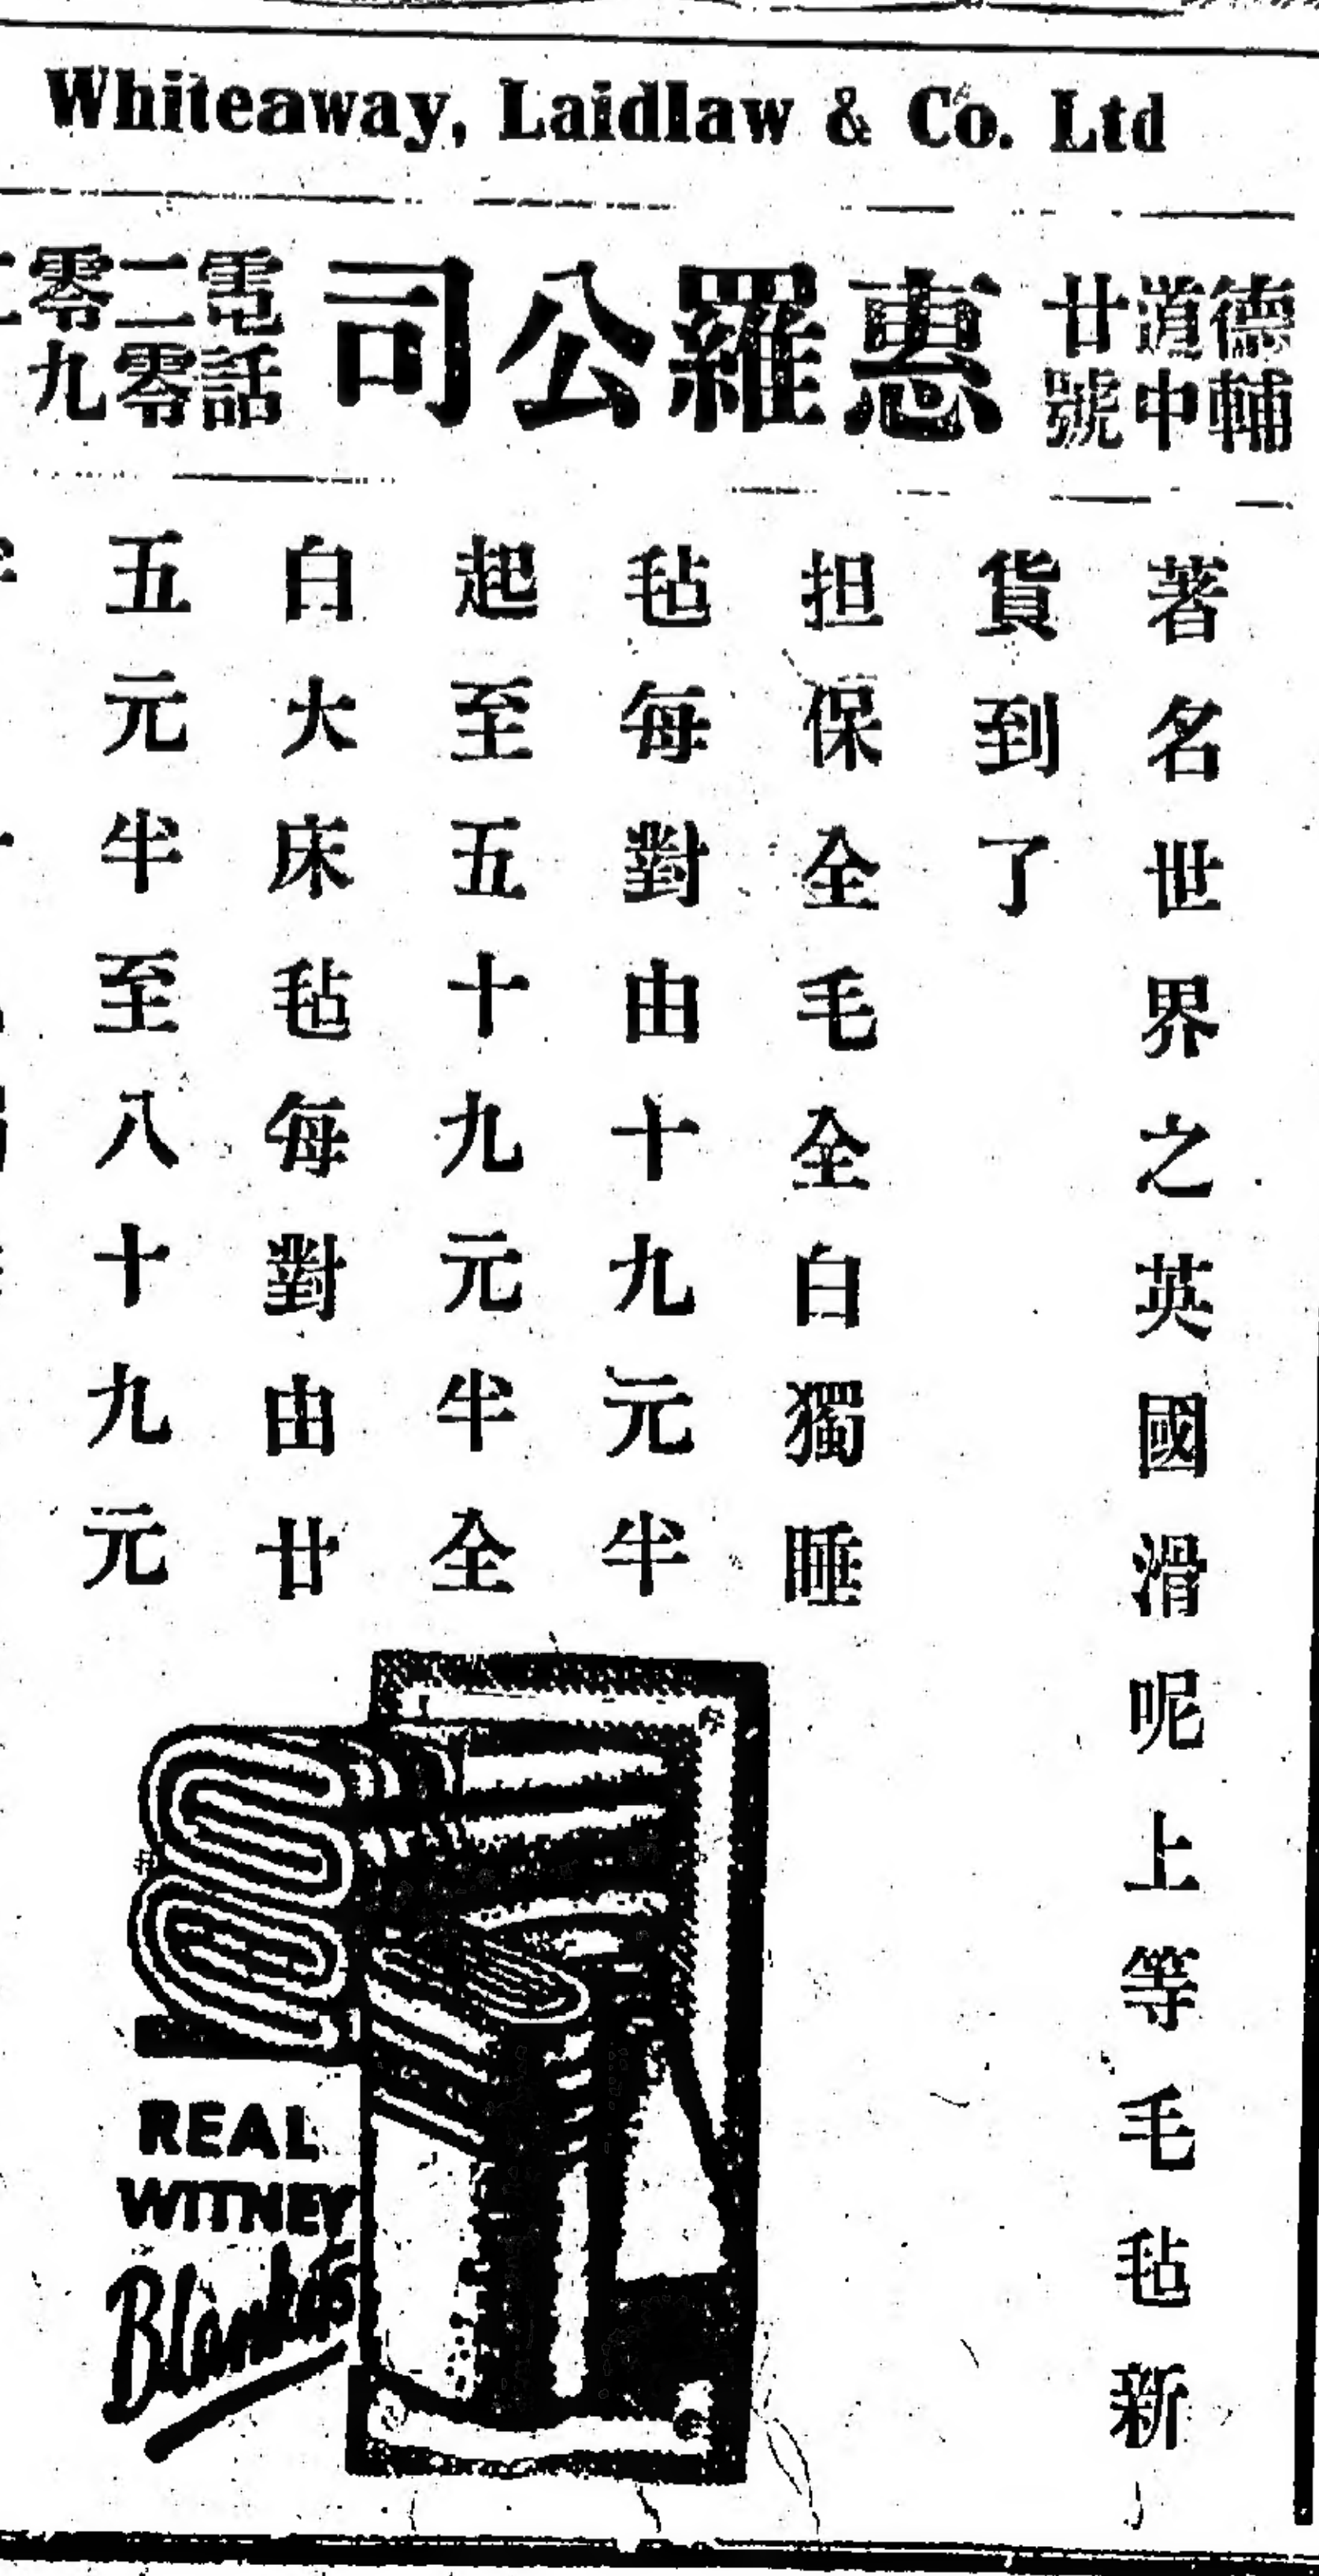 Whiteaway, Laidlaw & Co. Ltd
德輔
道中
廿號
惠羅公司
電話
二零
零九
著名世界之英國滑呢上等毛毡新
貨到了
担保全毛全白獨睡
毡每對由十九元半
起至五十九元半全
白大床毡每對由廿
五元半至八十九元
REAL
WITNEY
Blankets